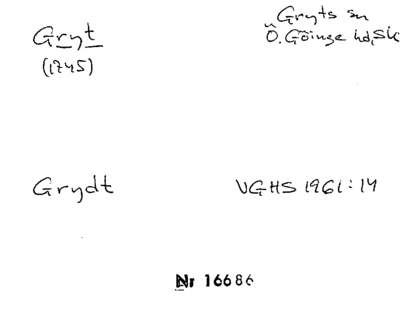 Gryt
Gryts sn
Ö. Göinge hd, Sk
(1745)
Grydt
VGHS 1961:14
Nr 16686